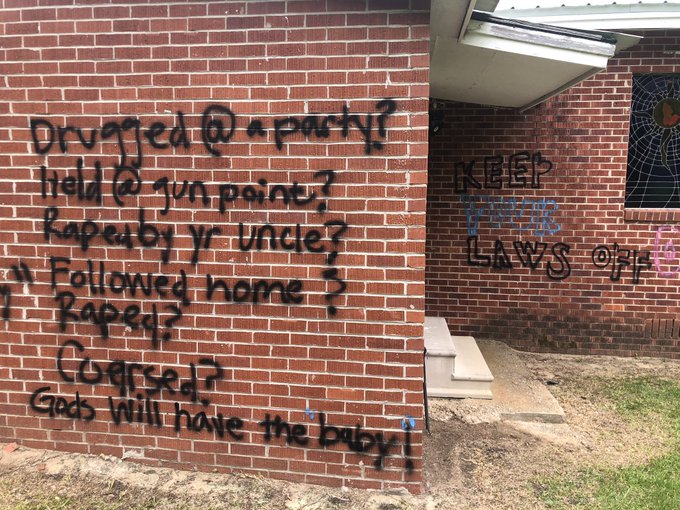 Drugged @ a party?
Held @ gun point?
Raped by yr uncle?
" " Followed home ?
Raped?
Coersed?
Gods Will have the baby!
KEEP
LAWS OFF